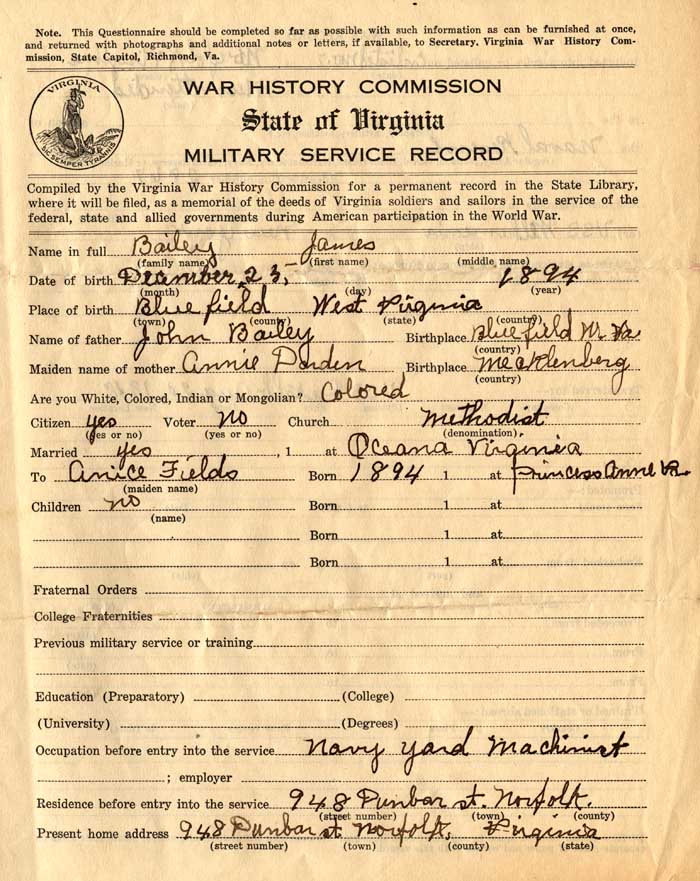 Note. This Questionnaire should be completed so far as possible with such information as can be furnished at once,
and returned with photographs and additional notes or letters, if available, to Secretary. Virginia War History Com-
mission, State Capitol, Richmond, Va.
VIRGINIA
SIC SEMPER TYRANNIS
WAR HISTORY COMMISSION
State of Virginia
MILITARY SERVICE RECORD
Compiled by the Virginia War History Commission for a permanent record in the State Library,
where it will be filed, as a memorial of the deeds of Virginia soldiers and sailors in the service of the
federal, state and allied governments during American participation in the World War.
Name in full Bailey James
(family name) (first name) (middle name)
Date of birth December 23, 1894
(month) (day) (year)
Place of birth Bluefield West Virginia
(town) (county) (state) (country)
Name of father John Bailey Birthplace Bluefield W. Va
(country)
Maiden name of mother Annie Darden Birthplace Mecklenberg
(country)
Are you White, Colored, Indian or Mongolian? Colored
Citizen yes Voter no Church Methodist
(yes or no) (yes or no) (denomination)
Married yes , 1 at Oceana Virginia
To Anice Fields Born 1894 1 at Princess Anne Va.
(maiden name)
Children no Born 1 at
(name)
Born 1 at
Born 1 at
Fraternal Orders
College Fraternities
Previous military service or training
Education (Preparatory) (College)
(University) (Degrees)
Occupation before entry into the service Navy Yard Machinist
; employer
Residence before entry into the service 948 Dunbar st. Norfolk.
(street number) (town) (county)
Present home address 948 Dunbar st Norfolk, Virginia
(street number) (town) (county) (state)